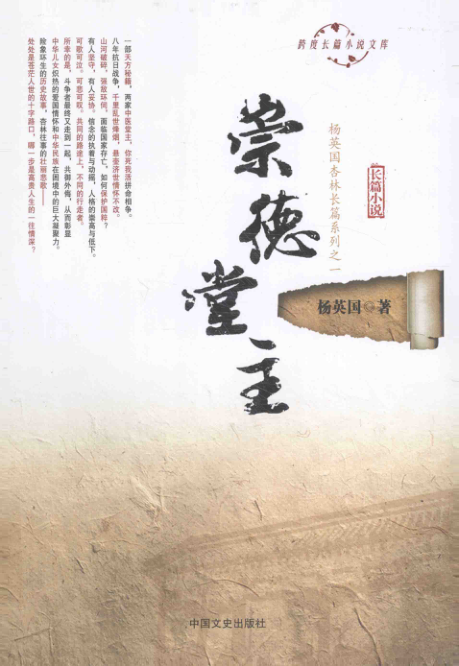 跨度长篇小说文库
长篇小说
杨英国杏林长篇系列之一
崇德堂主
杨英国◎著
一部天方秘籍，两家中医堂主，你死我活拼命相争。
八年抗日战争，千里乱世烽烟，悬壶济世情怀不改。
山河破碎，强敌环伺。面临国家存亡，如何保护国粹？
有人坚守，有人妥协。信念的执着与动摇，人格的崇高与低下。
可歌可泣。可悲可叹。共同的路途上，不同的行走者。
所幸的是，斗争者最终又走到一起，共御外侮，从而彰显
中华儿女炽热的爱国情怀和中华民族在困境中的巨大凝聚力。
险象环生的历史故事，杏林往事的壮丽悲歌——
处处是苍茫人世的十字路口，哪一步是高贵人生的一往情深？
中国文史出版社